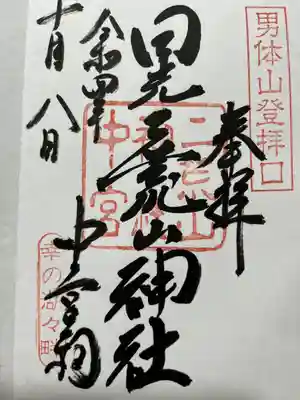 男体山登拝口
奉拝
日光二荒山神社
中宮祠
二荒山
神社
中宮
令和四年
十月八日
幸の湖々畔